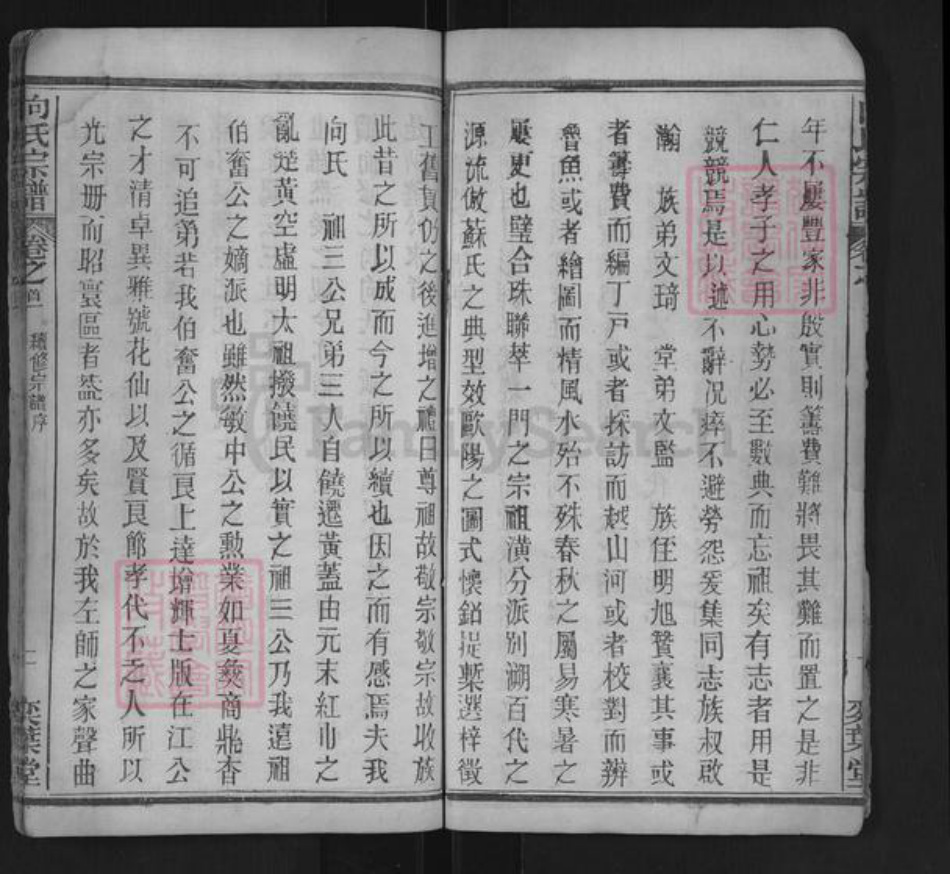 年不屢豐家非殷實則籌費雖將畏其難而置之是非
仁人孝子之用心勢必至數典而忘祖矣有志者用是
競競焉是以述不辭況瘁不避勞怨爰集同志族叔啟
瀚 族弟文琦 堂弟文監 族侄明旭贊襄其事或
者籌費而編丁戸或者採訪而越山河或者校對而辨
魯魚或者繪圖而精風水殆不殊春秋之屬易寒暑之
屢更也璧合珠聯萃一門之宗祖潢分派別溯百代之
源流倣蘇氏之典型效歐陽之圖式懷鉛提槧選梓徵
工舊貫仍之後進增之禮曰尊祖故敬宗敬宗故收族
此昔之所以成而今之所以續也因之而有感焉夫我
向氏 祖三公兄弟三人自饒遷黃蓋由元末紅巾之
亂楚黃空虛明太祖撥饒民以實之祖三公乃我遠祖
伯奮公之嫡派也雖然敏中公之勲業如夏彜商鼎杳
不可追第若我伯奮公之循良上達增輝士版在江公
之才清卓異雅號花仙以及賢良節孝代不乏人所以
光宗冊而昭寰區者益亦多矣故於我左師之家聲曲
向氏宗譜
卷之首
續修宗譜序
奕葉堂
奕葉堂
FamilySearch